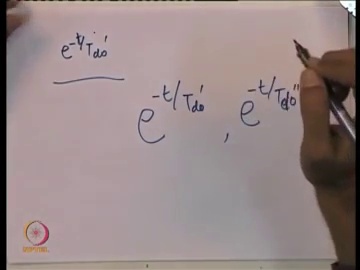 e^{-t/T_{do}'}
e^{-t/T_{do}'} , e^{-t/T_{do}''}
NPTEL